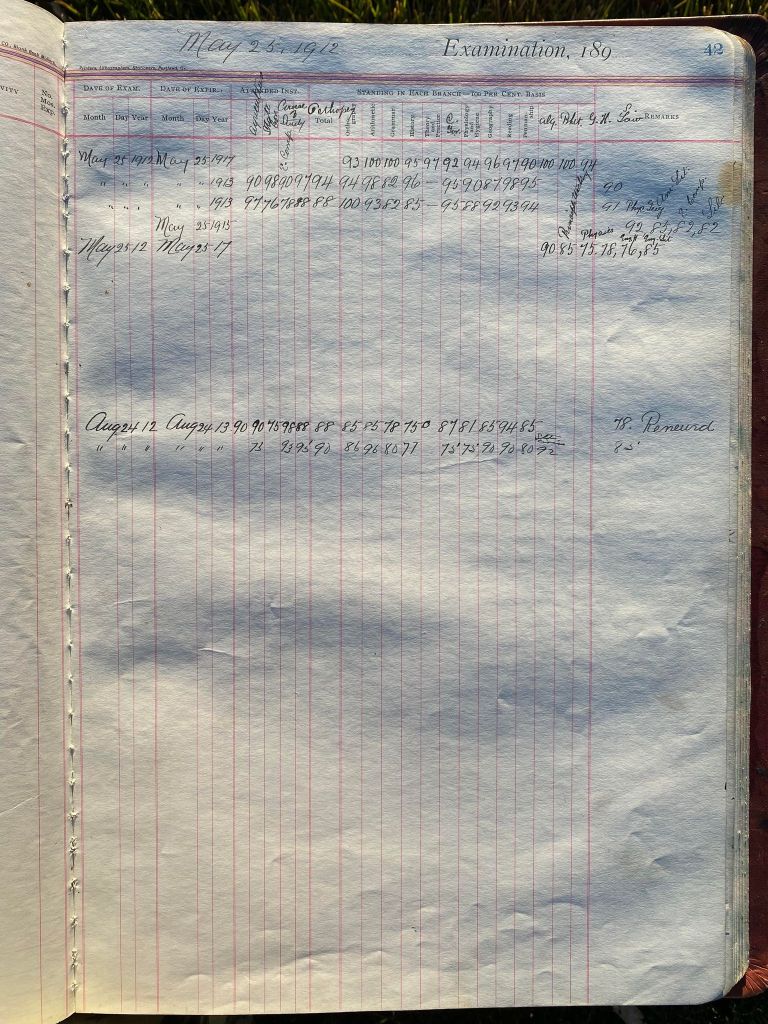 May 25, 1912 Examination, 189 42
DATE OF EXAM. DATE OF EXPIR. ATTENDED INST. STANDING IN EACH BRANCH—100 PER CENT. BASIS
Month Day Year Month Day Year Total Arithmetic Grammar History Theory and Practice Physiology and Hygiene Geography Reading Penmanship alg. REMARKS
May 25 1912 May 25 1917 93 100 100 95 97 92 94 96 97 90 100 100 94
" " " " " 1913 90 98 90 97 94 94 98 82 96 – 95 90 87 98 95 90
" " " " " 1913 97 76 78 88 88 100 93 82 85 – 95 88 92 93 94 91
May 25 1915 92, 85, 82, 82
May 25 12 May 25 17 90 85 75. 78, 76, 85
Aug 24 12 Aug 24 13 90 90 75 98 88 88 85 85 78 75 87 81 85 94 85 78. Reneurd
" " " " " " 75 93 95 90 86 96 80 77 75 75 90 90 80 92 85